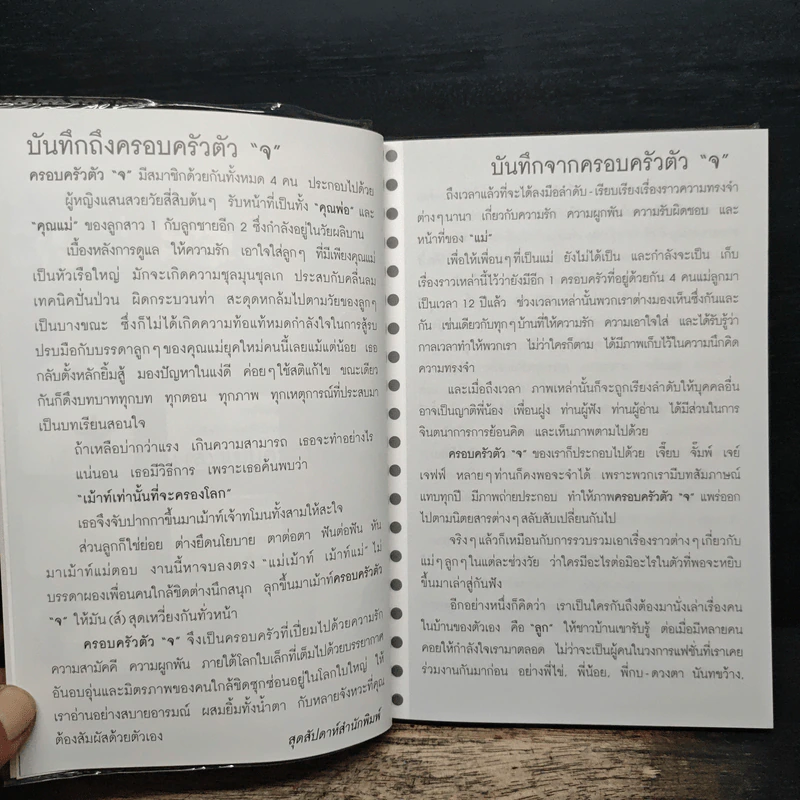 บันทึกถึงครอบครัวตัว "จ"
ครอบครัวตัว "จ" มีสมาชิกด้วยกันทั้งหมด 4 คน ประกอบไปด้วย
ผู้หญิงแสนสวยวัยสี่สิบต้นๆ รับหน้าที่เป็นทั้ง "คุณพ่อ" และ
"คุณแม่" ของลูกสาว 1 กับลูกชายอีก 2 ซึ่งกำลังอยู่ในวัยผลิบาน
เบื้องหลังการดูแล ให้ความรัก เอาใจใส่ลูกๆ ที่มีเพียงคุณแม่
เป็นหัวเรือใหญ่ มักจะเกิดความชุลมุนชุลเก ประสบกับคลื่นลม
เทคนิคปั่นป่วน ผิดกระบวนท่า สะดุดหกล้มไปตามวัยของลูกๆ
เป็นบางขณะ ซึ่งก็ไม่ได้เกิดความท้อแท้หมดกำลังใจในการสู้รบ
ปรบมือกับบรรดาลูกๆ ของคุณแม่ยุคใหม่คนนี้เลยแม้แต่น้อย เธอ
กลับตั้งหลักยิ้มสู้ มองปัญหาในแง่ดี ค่อยๆ ใช้สติแก้ไข ขณะเดียว
กันก็ดึงบทบาททุกบท ทุกตอน ทุกภาพ ทุกเหตุการณ์ที่ประสบมา
เป็นบทเรียนสอนใจ
ถ้าเหลือบ่ากว่าแรง เกินความสามารถ เธอจะทำอย่างไร
แน่นอน เธอมีวิธีการ เพราะเธอค้นพบว่า
"เม้าท์เท่านั้นที่จะครองโลก"
เธอจึงจับปากกาขึ้นมาเม้าท์เจ้าทโมนทั้งสามให้สะใจ
ส่วนลูกก็ใช่ย่อย ต่างยึดนโยบาย ตาต่อตา ฟันต่อฟัน หัน
มาเม้าท์แม่ตอบ งานนี้หาจบลงตรง "แม่เม้าท์ เม้าท์แม่" ไม่
บรรดาผองเพื่อนคนใกล้ชิดต่างนึกสนุก ลุกขึ้นมาเม้าท์ครอบครัวตัว
"จ" ให้มัน (ส์) สุดเหวี่ยงกันทั่วหน้า
ครอบครัวตัว "จ" จึงเป็นครอบครัวที่เปี่ยมไปด้วยความรัก
ความสามัคคี ความผูกพัน ภายใต้โลกใบเล็กที่เต็มไปด้วยบรรยากาศ
อันอบอุ่นและมิตรภาพของคนใกล้ชิดซุกซ่อนอยู่ในโลกใบใหญ่ ให้
เราอ่านอย่างสบายอารมณ์ ผสมยิ้มทั้งน้ำตา กับหลายจังหวะที่คุณ
ต้องสัมผัสด้วยตัวเอง
สุดสัปดาห์สำนักพิมพ์
บันทึกจากครอบครัวตัว "จ"
ถึงเวลาแล้วที่จะได้ลงมือลำดับ-เรียบเรียงเรื่องราวความทรงจำ
ต่างๆนานา เกี่ยวกับความรัก ความผูกพัน ความรับผิดชอบ และ
หน้าที่ของ "แม่"
เพื่อให้เพื่อนๆที่เป็นแม่ ยังไม่ได้เป็น และกำลังจะเป็น เก็บ
เรื่องราวเหล่านี้ไว้ว่ายังมีอีก 1 ครอบครัวที่อยู่ด้วยกัน 4 คนแม่ลูกมา
เป็นเวลา 12 ปีแล้ว ช่วงเวลาเหล่านั้นพวกเราต่างมองเห็นซึ่งกันและ
กัน เช่นเดียวกับทุกๆบ้านที่ให้ความรัก ความเอาใจใส่ และได้รับรู้ว่า
กาลเวลาทำให้พวกเรา ไม่ว่าใครก็ตาม ได้มีภาพเก็บไว้ในความนึกคิด
ความทรงจำ
และเมื่อถึงเวลา ภาพเหล่านั้นก็จะถูกเรียงลำดับให้บุคคลอื่น
อาจเป็นญาติพี่น้อง เพื่อนฝูง ท่านผู้ฟัง ท่านผู้อ่าน ได้มีส่วนในการ
จินตนาการการย้อนคิด และเห็นภาพตามไปด้วย
ครอบครัวตัว "จ" ของเราก็ประกอบไปด้วย เจี๊ยบ จั๊มพ์ เจย์
เจฟฟ์ หลายๆท่านก็คงพอจะจำได้ เพราะพวกเรามีบทสัมภาษณ์
แทบทุกปี มีภาพถ่ายประกอบ ทำให้ภาพครอบครัวตัว "จ" แพร่ออก
ไปตามนิตยสารต่างๆสลับสับเปลี่ยนกันไป
จริงๆแล้วก็เหมือนกับการรวบรวมเอาเรื่องราวต่างๆเกี่ยวกับ
แม่ๆลูกๆในแต่ละช่วงวัย ว่าใครมีอะไรต่อมิอะไรในตัวที่พอจะหยิบ
ขึ้นมาเล่าสู่กันฟัง
อีกอย่างหนึ่งก็คิดว่า เราเป็นใครกันถึงต้องมานั่งเล่าเรื่องคน
ในบ้านของตัวเอง คือ "ลูก" ให้ชาวบ้านเขารับรู้ ต่อเมื่อมีหลายคน
คอยให้กำลังใจเรามาตลอด ไม่ว่าจะเป็นผู้คนในวงการแฟชั่นที่เราเคย
ร่วมงานกันมาก่อน อย่างพี่ไข่. พี่น้อย. พี่กบ-ดวงตา นันทขว้าง.